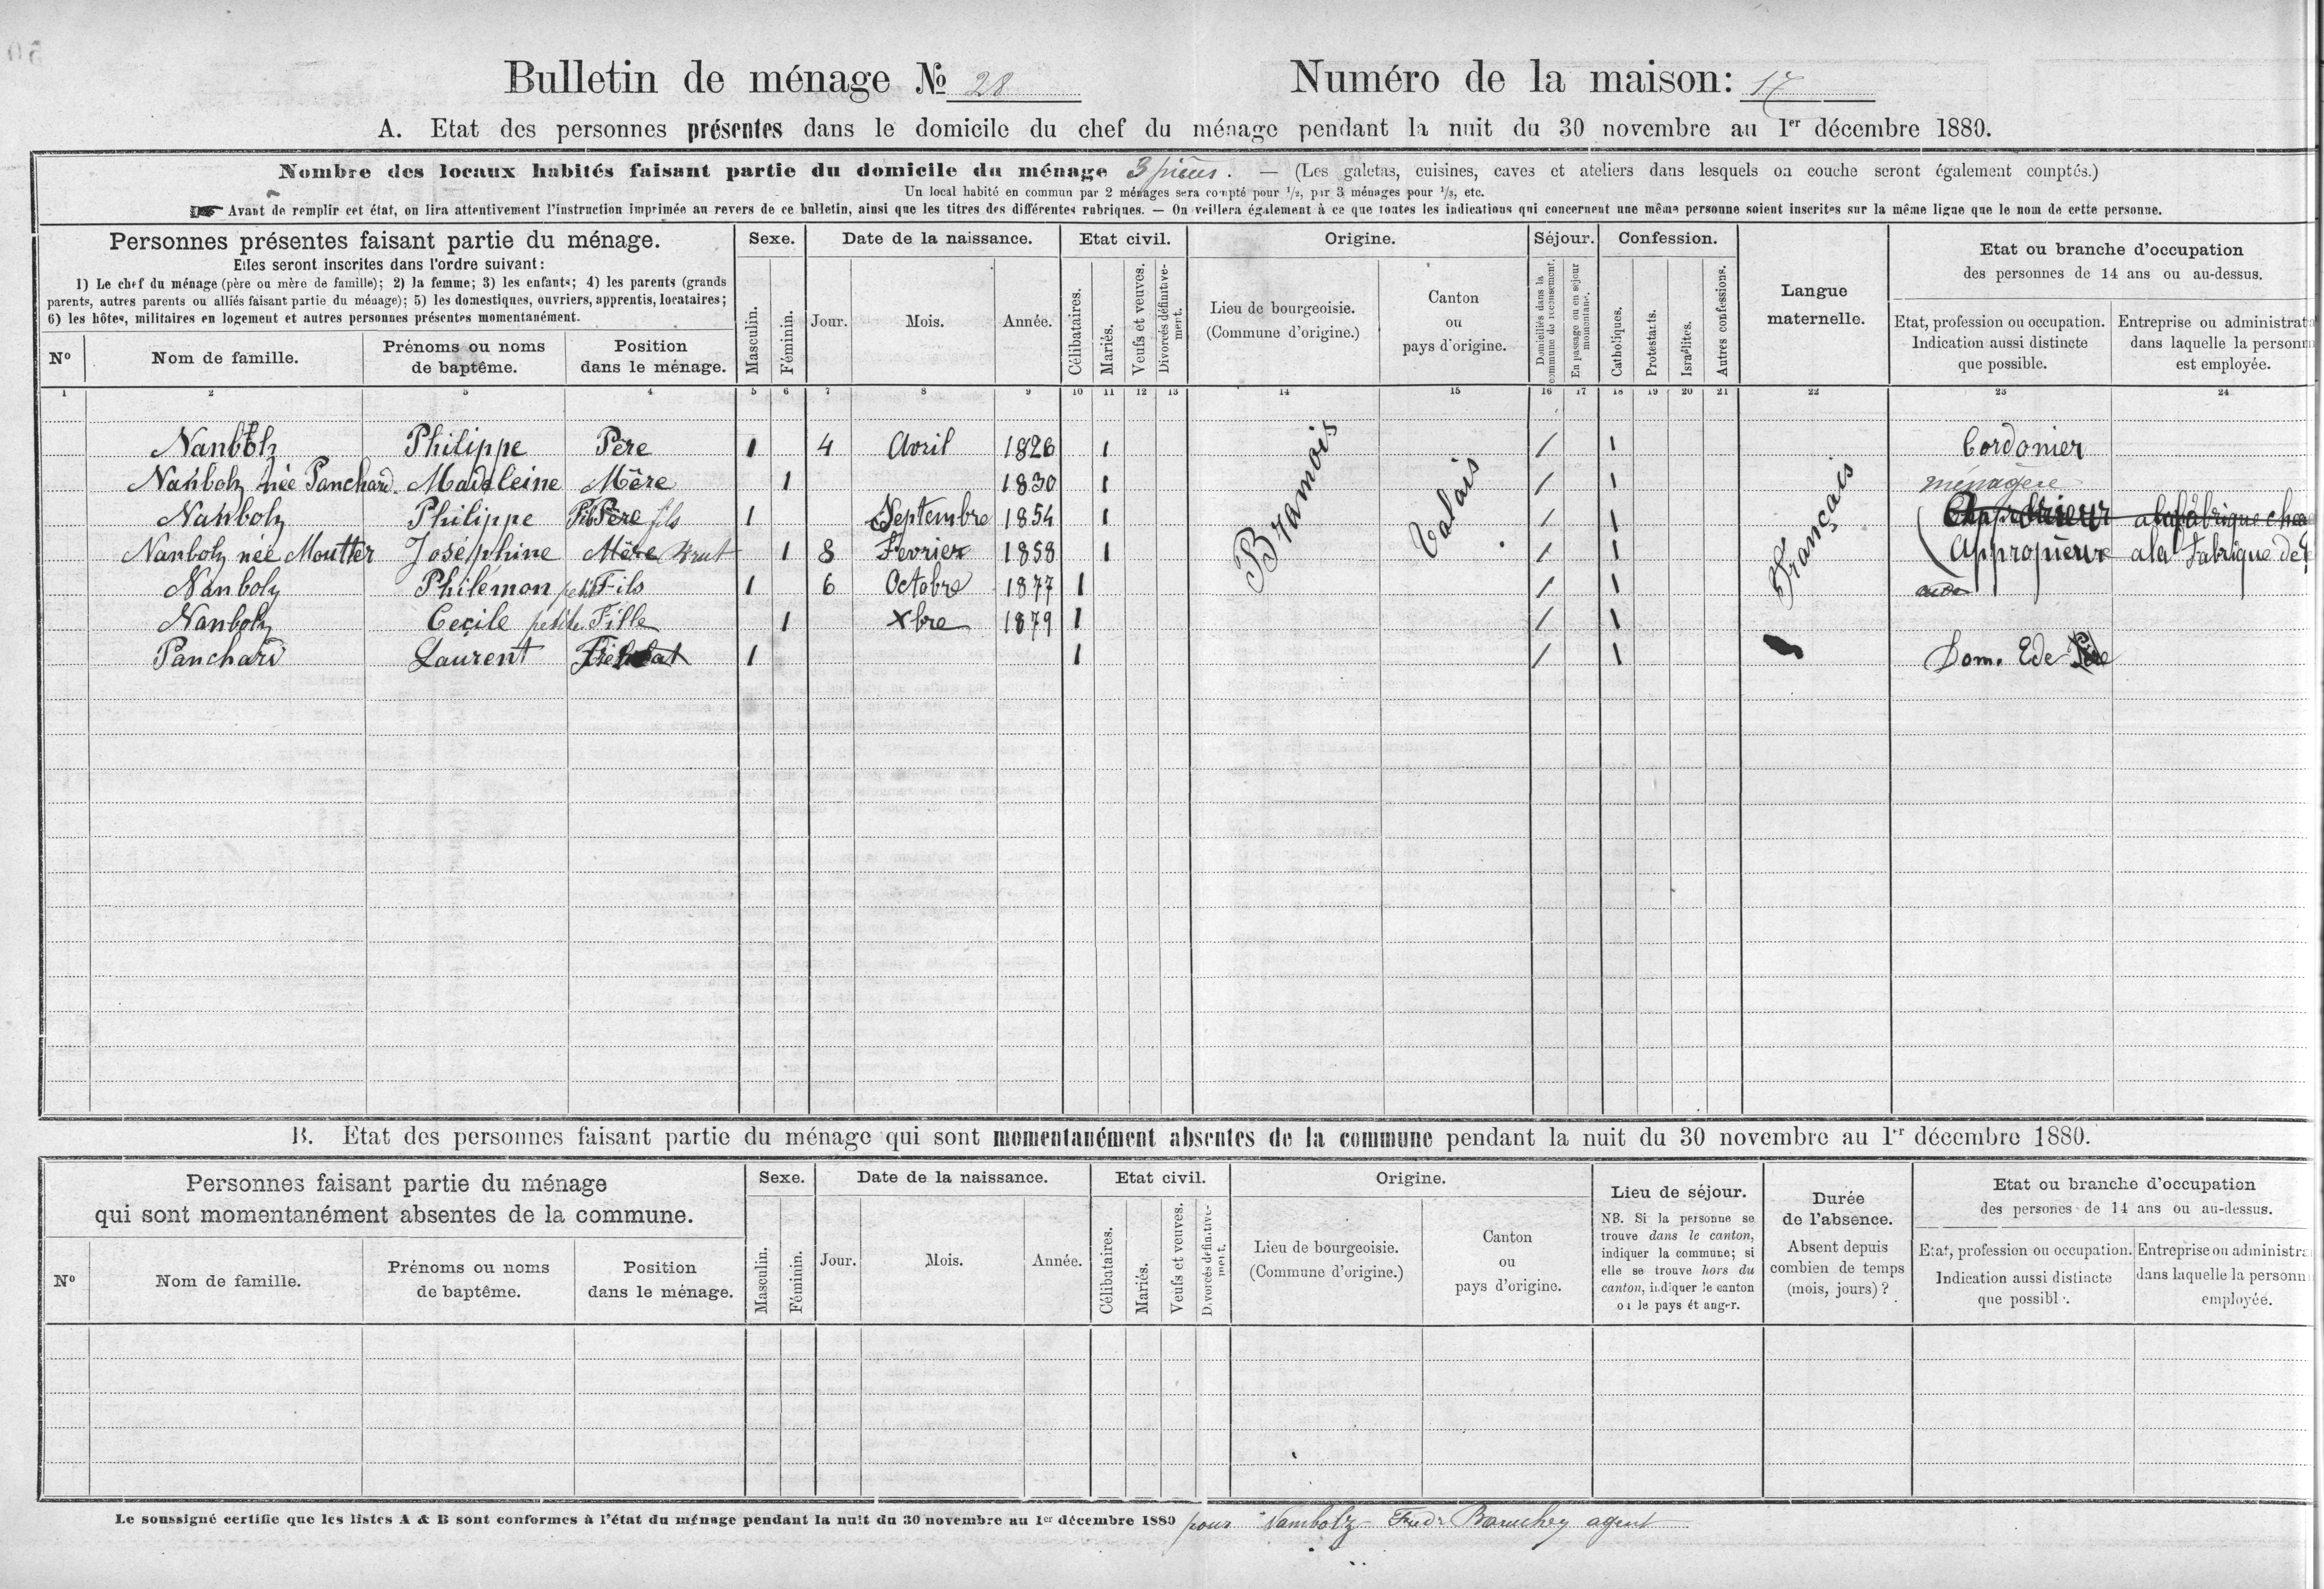 Bulletin de ménage № 28 Numéro de la maison: 17
A. Etat des personnes présentes dans le domicile du chef du ménage pendant la nuit du 30 novembre au 1er décembre 1880.
Nombre des locaux habités faisant partie du domicile du ménage 3 pièces. — (Les galetas, cuisines, caves et ateliers dans lesquels on couche seront également comptés.)
Un local habité en commun par 2 ménages sera compté pour 1/2, par 3 ménages pour 1/3, etc.
Avant de remplir cet état, on lira attentivement l'instruction imprimée au revers de ce bulletin, ainsi que les titres des différentes rubriques. — On veillera également à ce que toutes les indications qui concernent une même personne soient inscrites sur la même ligne que le nom de cette personne.
Personnes présentes faisant partie du ménage.
Elles seront inscrites dans l'ordre suivant:
1) Le chef du ménage (père ou mère de famille); 2) la femme; 3) les enfants; 4) les parents (grands
parents, autres parents ou alliés faisant partie du ménage); 5) les domestiques, ouvriers, apprentis, locataires;
6) les hôtes, militaires en logement et autres personnes présentes momentanément.
N° Nom de famille. Prénoms ou noms de baptême. Position dans le ménage.
Sexe. Masculin. Féminin.
Date de la naissance. Jour. Mois. Année.
Etat civil. Célibataires. Mariés. Veufs et veuves. Divorcés définitivement.
Origine. Lieu de bourgeoisie. (Commune d'origine.) Canton ou pays d'origine.
Séjour. Domiciliés dans la commune de recensement. En passage ou en séjour momentané.
Confession. Catholiques. Protestants. Israélites. Autres confessions.
Langue maternelle.
Etat ou branche d'occupation
des personnes de 14 ans ou au-dessus.
Etat, profession ou occupation. Indication aussi distincte que possible.
Entreprise ou administrat dans laquelle la personn est employée.
1 2 3 4 5 6 7 8 9 10 11 12 13 14 15 16 17 18 19 20 21 22 23 24
Nanbolz Philippe Père 1 4 Avril 1826 1 1 1 Cordonier
Nanbolz née Panchard Madeleine Mère 1 1830 1 1 1 ménagère
Nanbolz Philippe Père fils 1 Septembre 1854 1 1 1 a la fabrique
Nanbolz née Moutter Joséphine Mère Brut 1 8 Fevrier 1858 1 1 1 a la Fabrique de
Nanbolz Philémon petit Fils 1 6 Octobre 1877 1 1 1
Nanbolz Cecile petite Fille 1 Xbre 1879 1 1 1
Panchard Laurent 1 1 1 1 Dom. Ede
Bramois Valais Français
B. Etat des personnes faisant partie du ménage qui sont momentanément absentes de la commune pendant la nuit du 30 novembre au 1er décembre 1880.
Personnes faisant partie du ménage
qui sont momentanément absentes de la commune.
N° Nom de famille. Prénoms ou noms de baptême. Position dans le ménage.
Sexe. Masculin. Féminin.
Date de la naissance. Jour. Mois. Année.
Etat civil. Célibataires. Mariés. Veufs et veuves. Divorcés définitivement.
Origine. Lieu de bourgeoisie. (Commune d'origine.) Canton ou pays d'origine.
Lieu de séjour.
NB. Si la personne se
trouve dans le canton,
indiquer la commune; si
elle se trouve hors du
canton, indiquer le canton
ou le pays étranger.
Durée
de l'absence.
Absent depuis
combien de temps
(mois, jours)?
Etat ou branche d'occupation
des persones de 14 ans ou au-dessus.
Etat, profession ou occupation. Indication aussi distincte que possible.
Entreprise ou administra dans laquelle la personn employée.
Le soussigné certifie que les listes A & B sont conformes à l'état du ménage pendant la nuit du 30 novembre au 1er décembre 1880 pour Nambolz agent